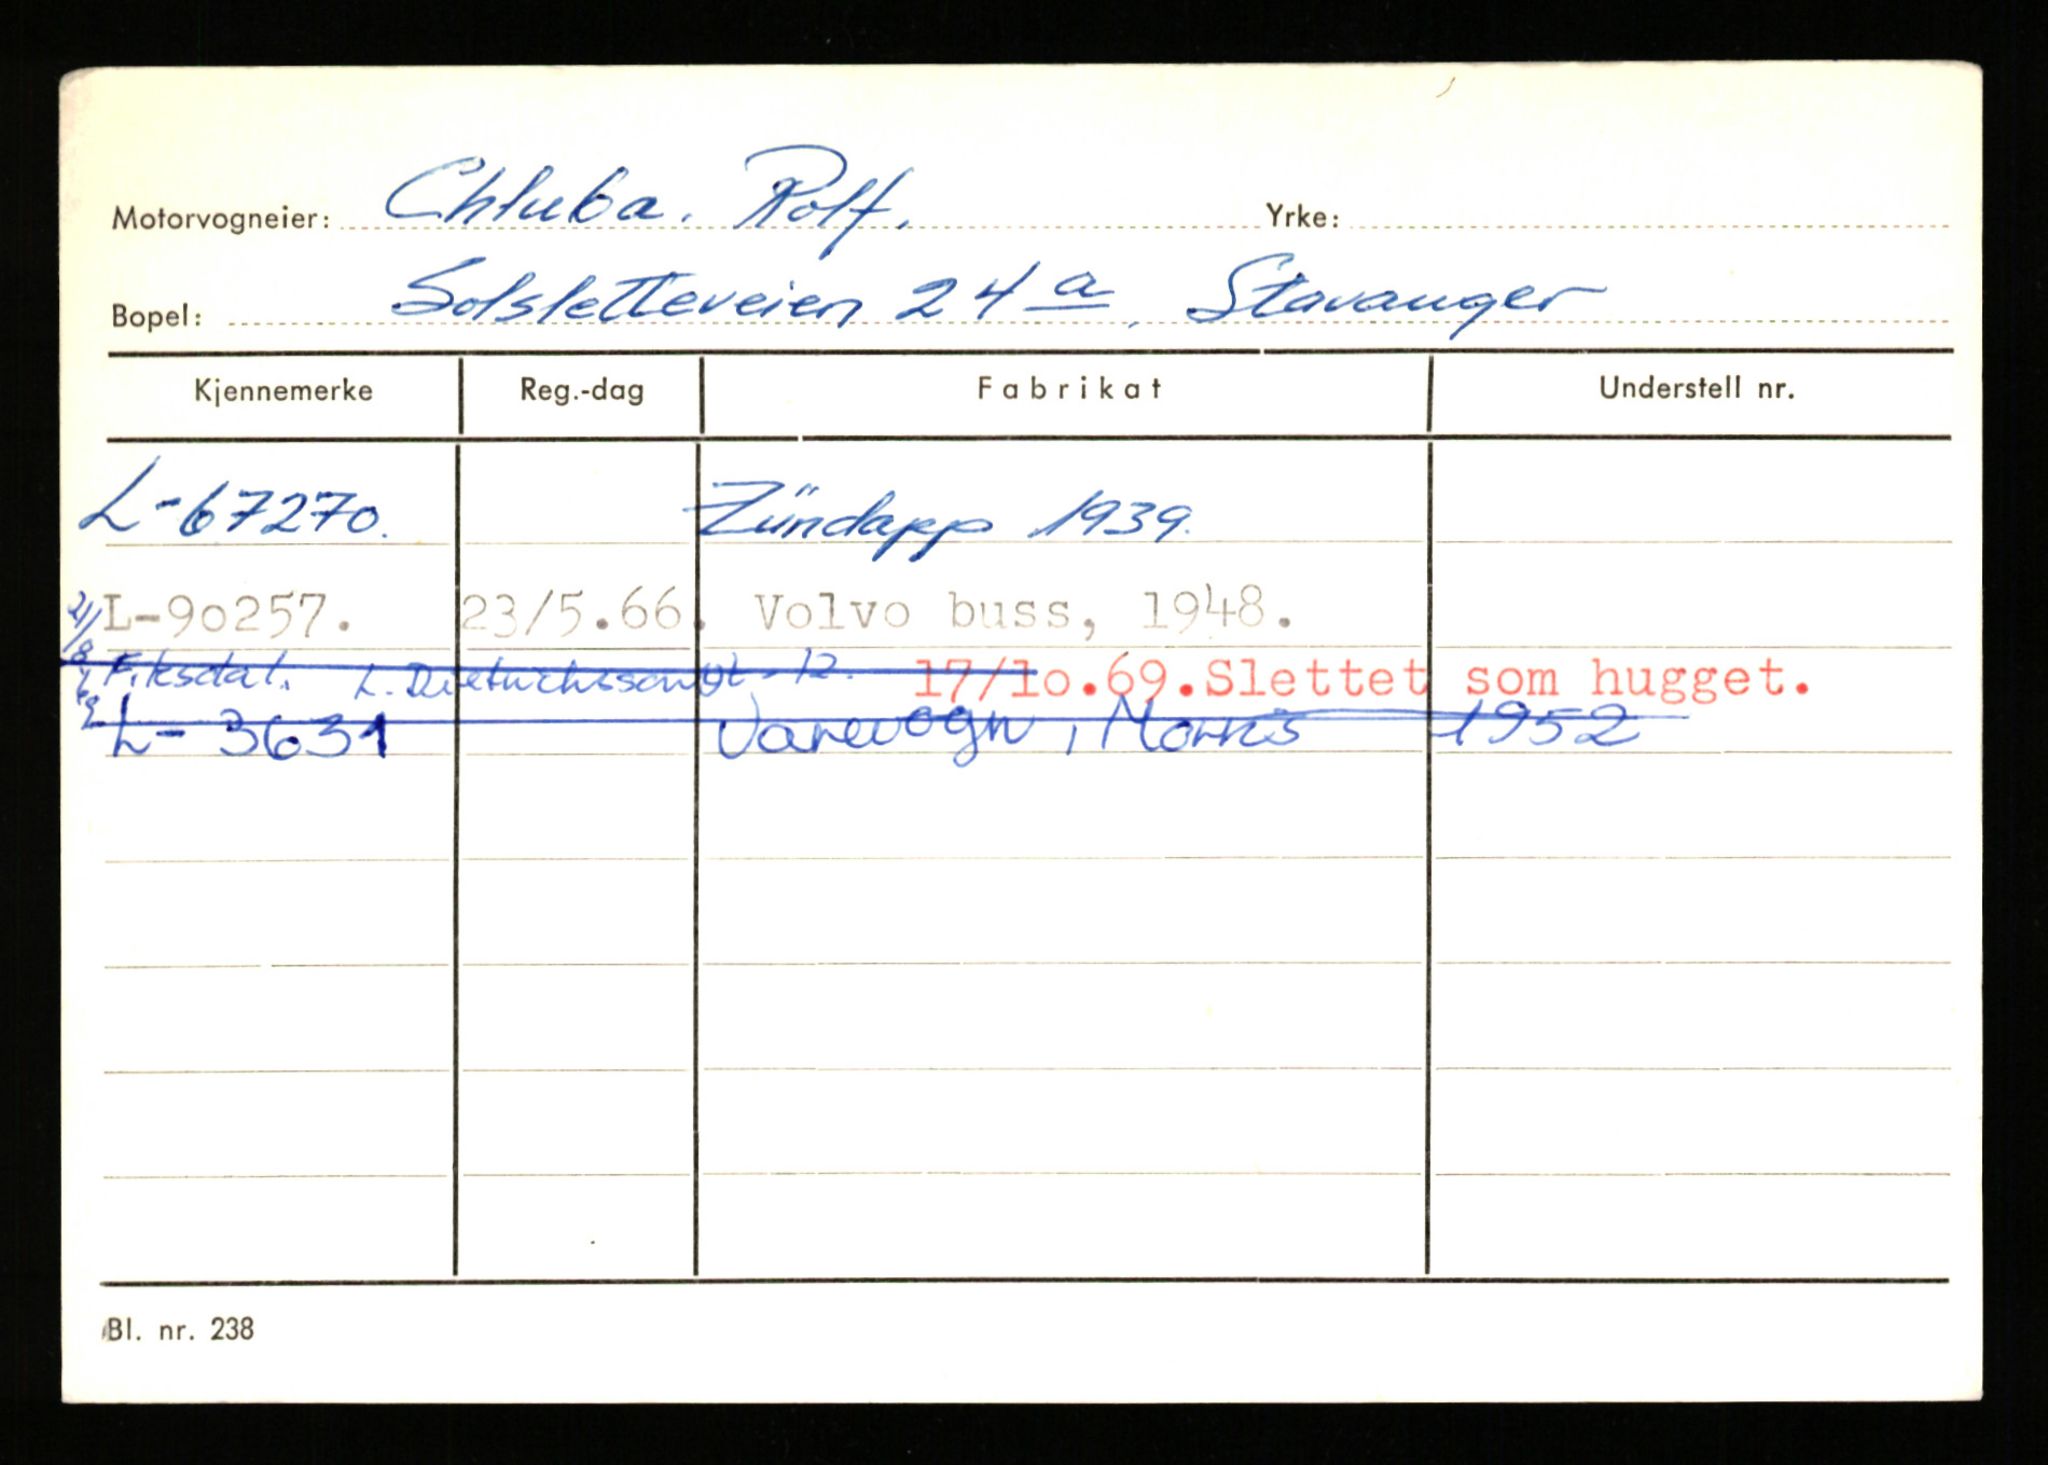 Motorvogneier: Chluba. Rolf. Yrke:
Bopel: Solsletteveien 24 a, Stavanger
Kjennemerke Reg.-dag Fabrikat Understell nr.
L-67270. Zündapp 1939.
L-90257. 23/5.66. Volvo buss, 1948.
Fiksdal. L. 12. 17/10.69. Slettet som hugget.
L- 3631 Varevogn, Morris 1952
Bl. nr. 238